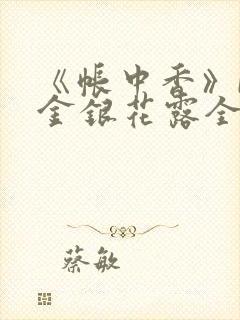 《帐中香》
金银花露全
蔡敏